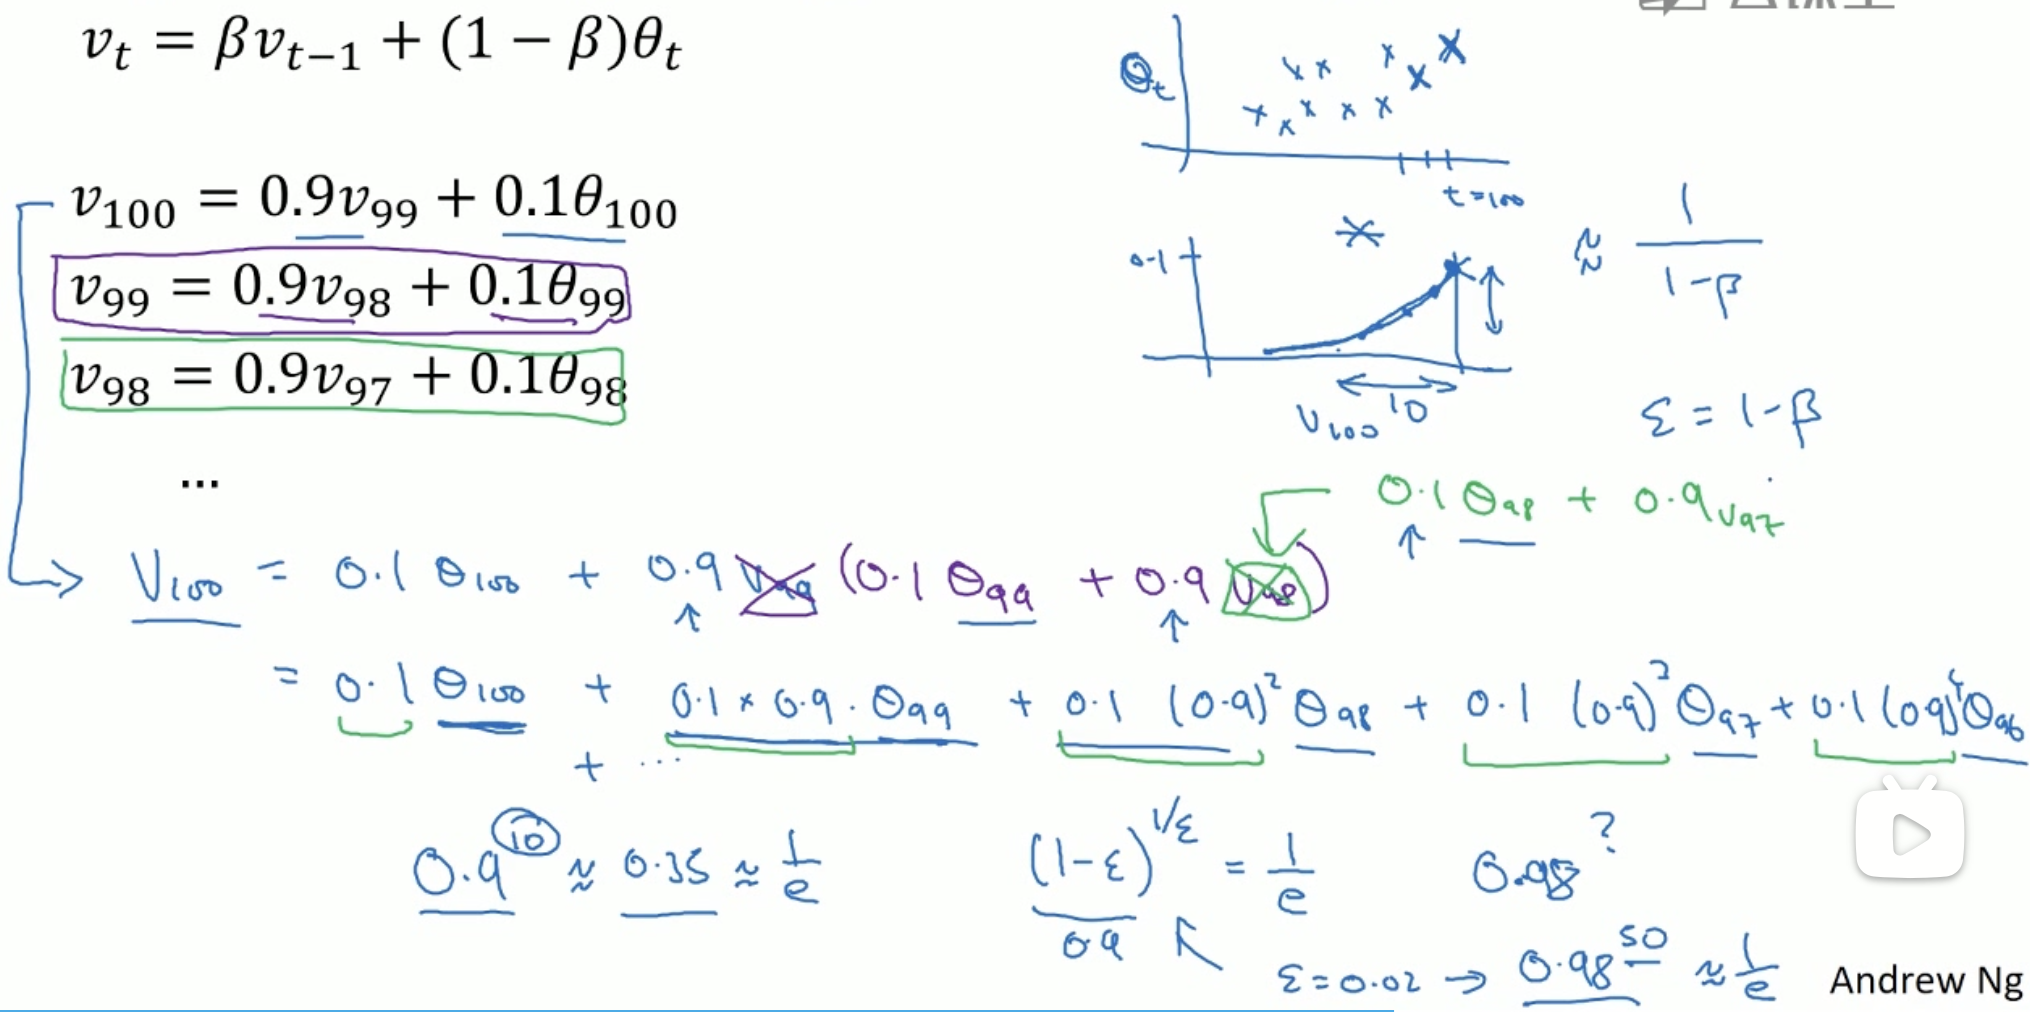 v_t = βv_{t−1} + (1 − β)θ_t
θ_t
t=100
v_{100} = 0.9v_{99} + 0.1θ_{100}
v_{99} = 0.9v_{98} + 0.1θ_{99}
v_{98} = 0.9v_{97} + 0.1θ_{98}
...
0.1
10
V_{100}
≈ 1/(1-β)
ε = 1-β
0.1 θ_{98} + 0.9 v_{97}
V_{100} = 0.1 θ_{100} + 0.9 v_{99} (0.1 θ_{99} + 0.9 v_{98})
= 0.1 θ_{100} + 0.1 × 0.9 · θ_{99} + 0.1 (0.9)^2 θ_{98} + 0.1 (0.9)^3 θ_{97} + 0.1 (0.9)^4 θ_{96}
+ ...
0.9^{10} ≈ 0.35 ≈ 1/e
(1-ε)^{1/ε} = 1/e
0.9
0.98^?
ε = 0.02 → 0.98^{50} ≈ 1/e
Andrew Ng